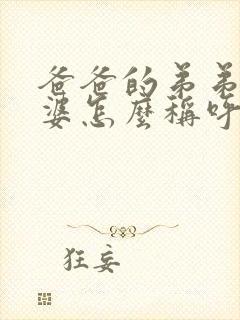 爸爸的弟弟
婆怎麼稱呼
狂妄